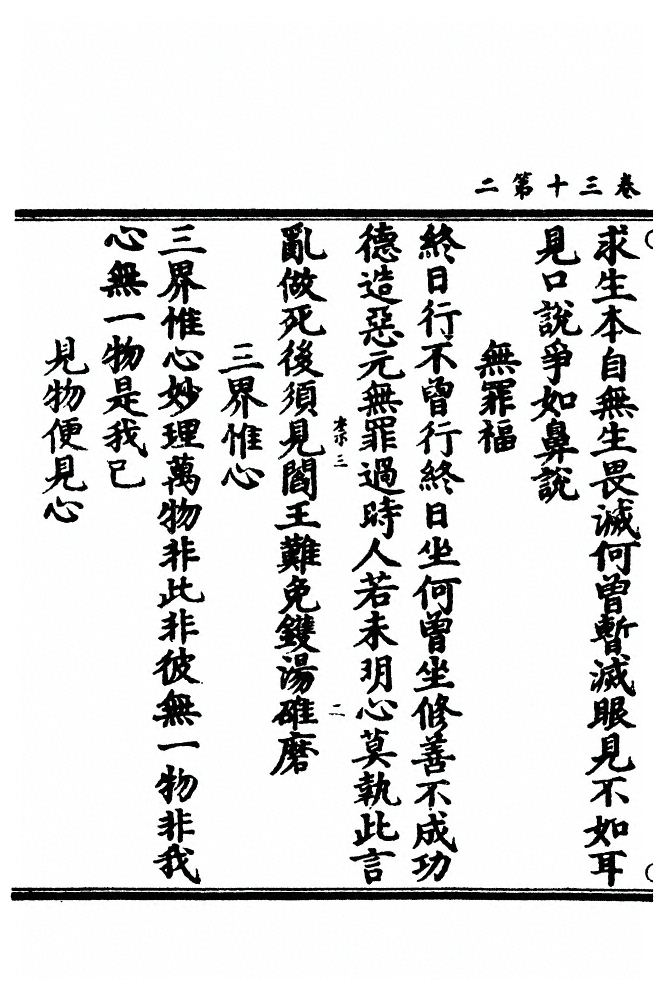 卷三十第二
求生本自無生畏滅何曾暫滅眼見不如耳
見口說爭如鼻說
無罪福
終日行不曾行終日坐何曾坐修善不成功
德造惡元無罪過時人若未明心莫執此言
亂做死後須見閻王難免鑊湯碓磨
三界惟心
三界惟心妙理萬物非此非彼無一物非我
心無一物是我己
見物便見心
二